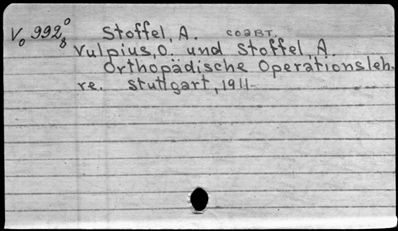 V₀ 992⁰₈ Stoffel, A. соавт.
Vulpius, O. und Stoffel, A.
Orthopädische Operationsleh-
re. Stuttgart, 1911